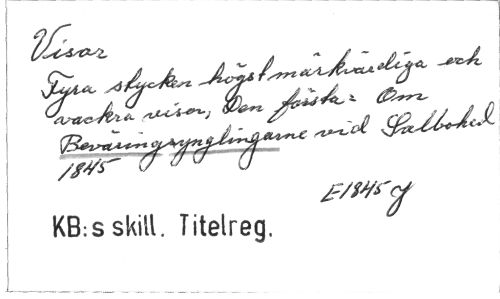 Visor
Fyra stycken högst märkvärdiga och
vackra visor, Den första: Om
Beväringsynglingarne vid Salbohed
1845
E1845 y
KB:s skill. Titelreg.